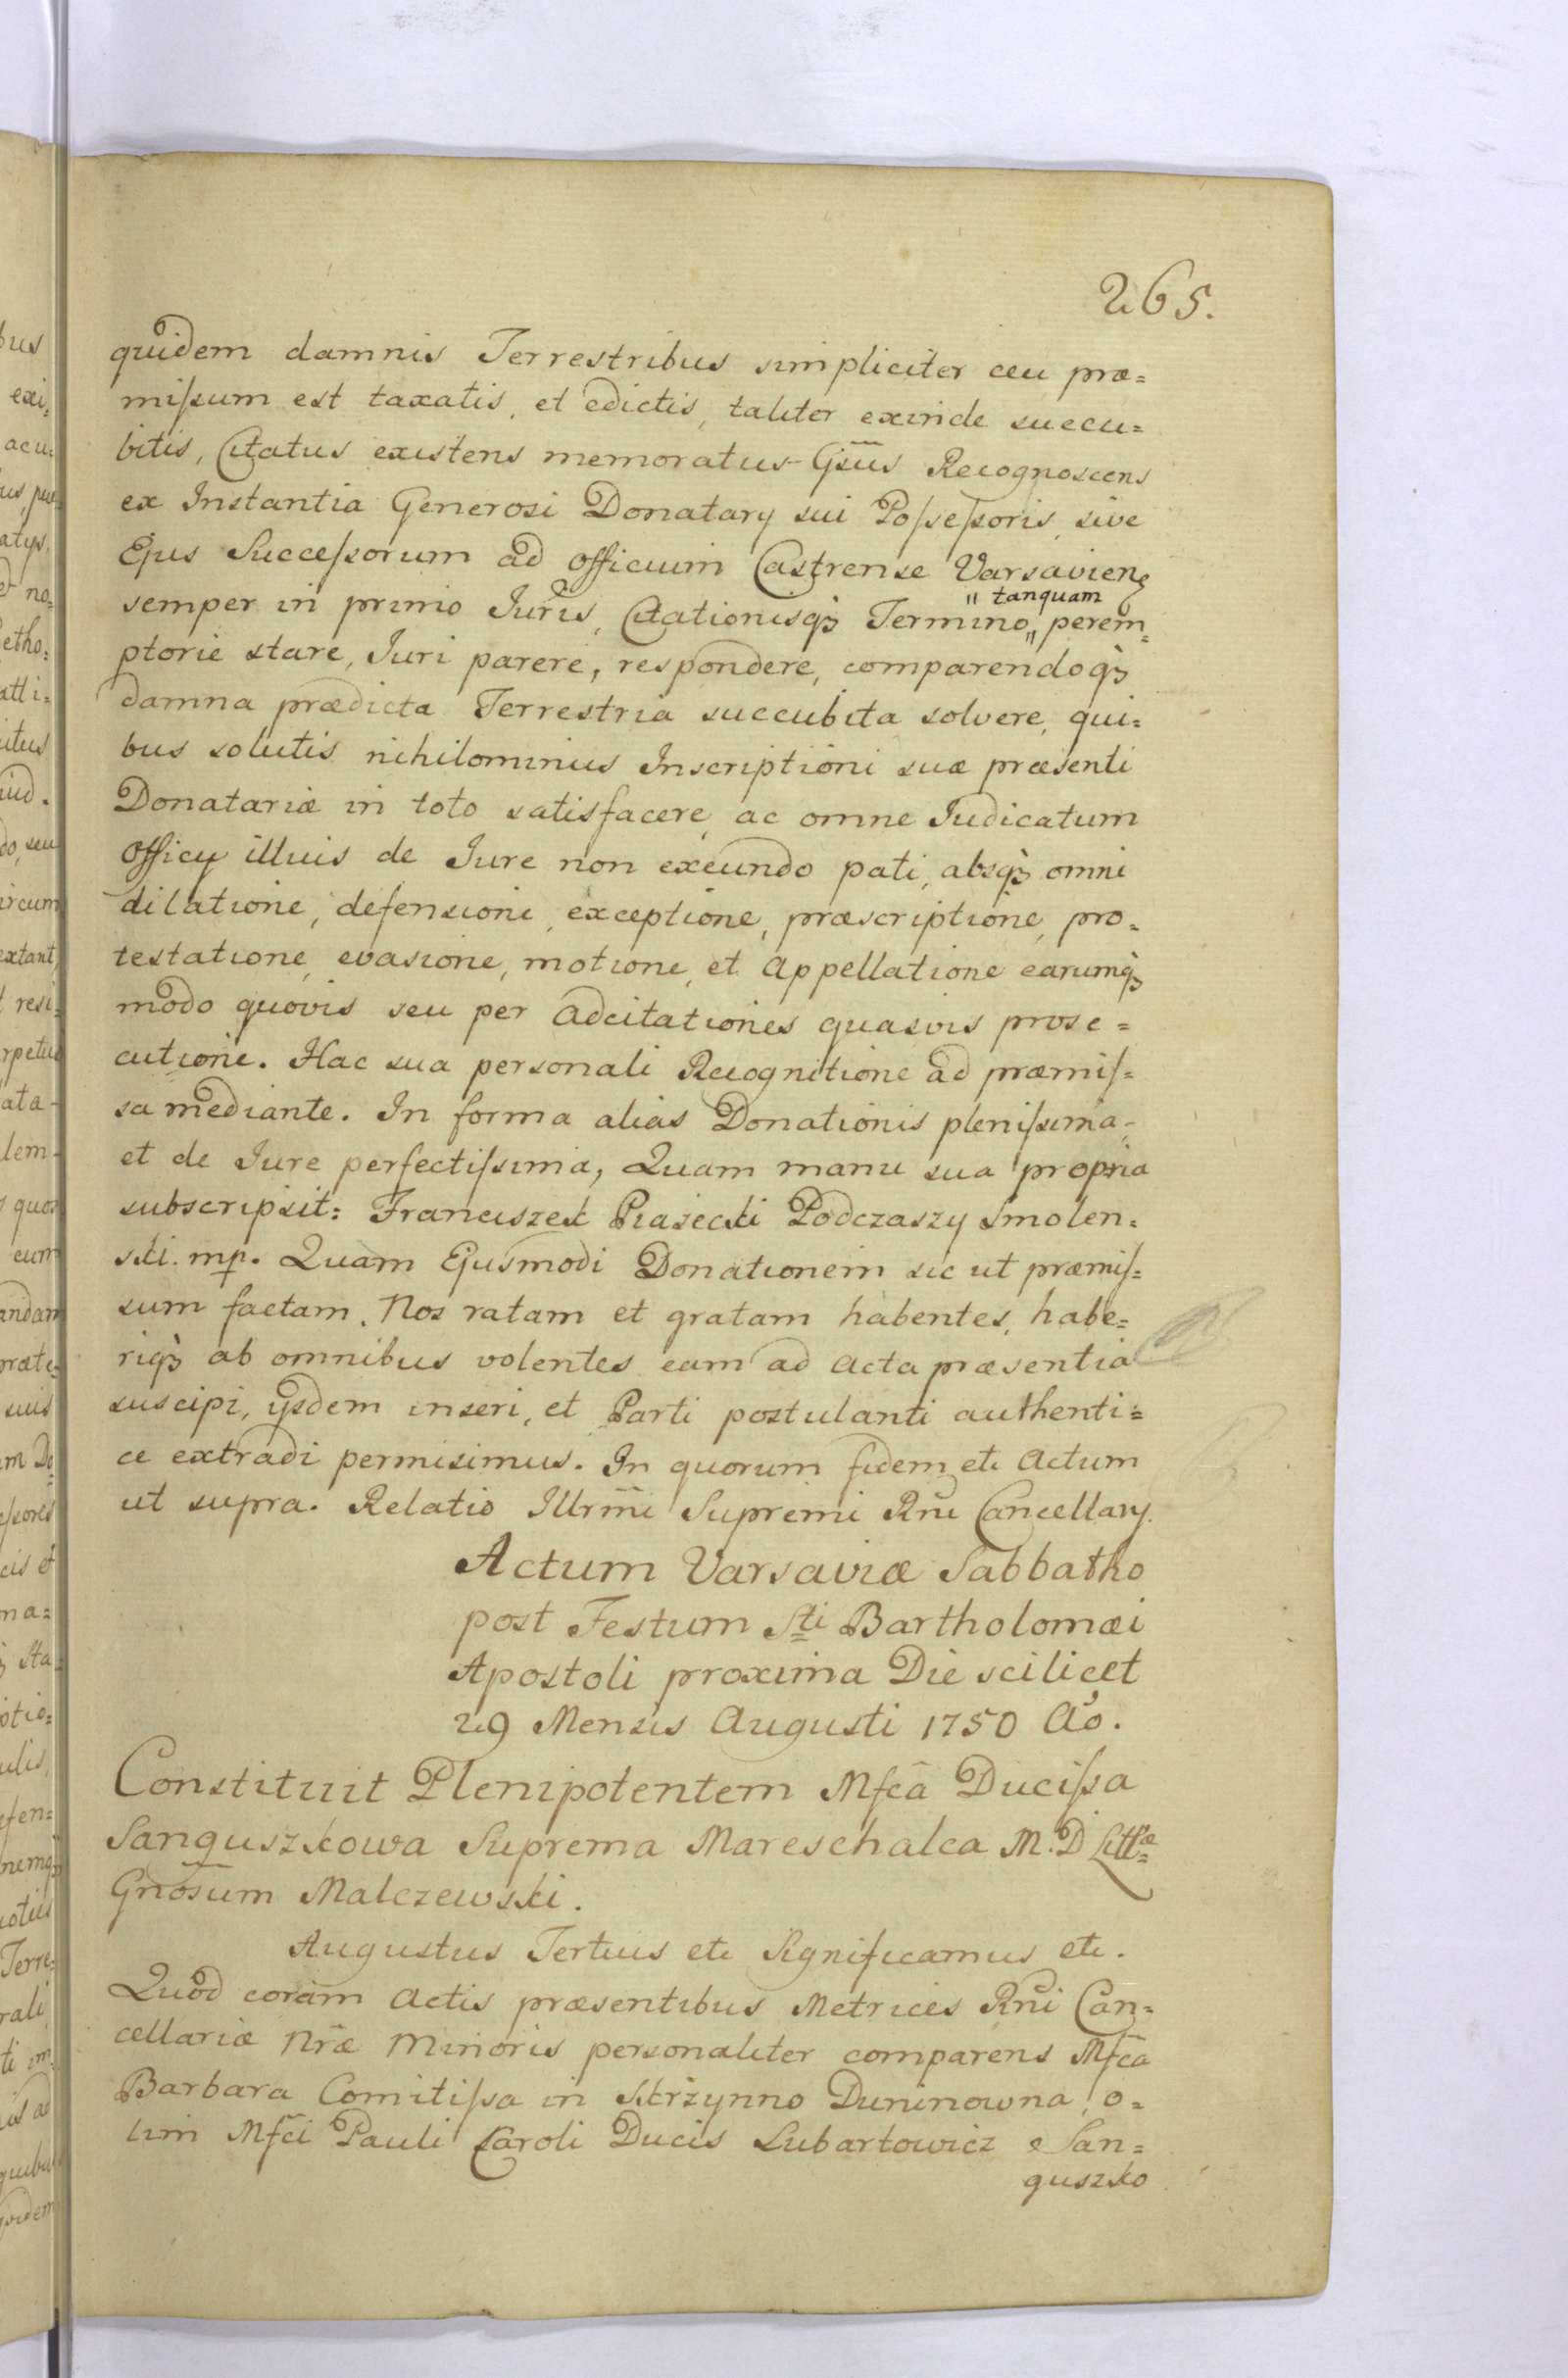 265.
quidem damnis Terrestribus simpliciter ceu præ=
miſsum est taxatis, et edictis, taliter exinde succu=
bitis, Citatus existens memoratus Gsūs Recognoscens
ex Instantia Generosi Donatarÿ sui Poſseſsoris, sive
Ejus Succeſsorum ad Officium Castrense Varsavien
" tanquam
semper in primo Juris, Citationisqꝫ Termino " perem=
ptorie stare, Juri parere, respondere, comparendoqꝫ
damna prædicta Terrestria succubita solvere, qui=
bus solutis nihilominus Inscriptioni suæ præsenti
Donatariæ in toto satisfacere, ac omne Judicatum
Officÿ illius de Jure non exeundo pati, absqꝫ omni
dilatione, defensione, exceptione, præscriptione, pro=
testatione, evasione, motione, et Appellatione earumqꝫ
modo quovis seu per Adcitationes quasvis prose=
cutione. Hac sua personali Recognitione ad præmiſ=
sa mediante. In forma alias Donationis pleniſsima,
et de Jure perfectiſsima, Quam manu sua propria
subscripsit: Franciszek Piasecki Podczaszy Smolen=
ski. mp. Quam Ejusmodi Donationem sic ut præmiſ=
sum factam. Nos ratam et gratam habentes, habe=
riqꝫ ab omnibus volentes eam ad Acta præsentia
suscipi, ÿsdem inseri, et Parti postulanti authenti=
ce extradi permisimus. In quorum fidem etc Actum
ut supra. Relatio Illrmi Supremi Rni Cancellarÿ.
Actum Varsaviæ Sabbatho
post Festum Sti Bartholomæi
Apostoli proxima Die scilicet
29 Mensis Augusti 1750 Aō.
Constituit Plenipotentem Mfcā Duciſsa
Sanguszkowa Suprema Mareschalca M. D. Littæ
Gnōsum Malczewski.
Augustus Tertius etc Significamus etc.
Quod coram Actis præsentibus Metrices Rni Can=
cellariæ Nræ Minoris personaliter comparens Mfca
Barbara Comitiſsa in Skrzynno Duninowna, o=
lim Mfci Pauli Caroli Ducis Lubartowicz San=
guszko